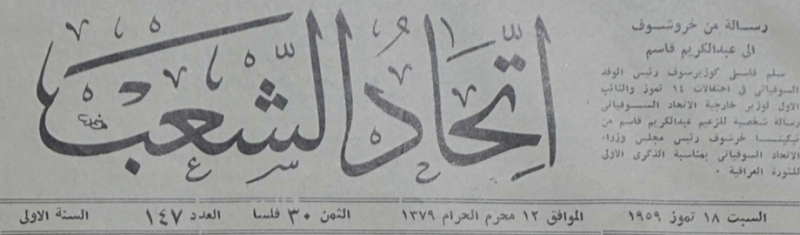 رسالة من خروشوف
الى عبدالكريم قاسم
سلم فاسيلي كوزنيسوف رئيس الوفد
السوفياتي في احتفالات ١٤ تموز والنائب
الاول لوزير خارجية الاتحاد السوفياتي
رسالة شخصية للزعيم عبدالكريم قاسم من
نيكيتا خرشوف رئيس مجلس وزراء
الاتحاد السوفياتي بمناسبة الذكرى الاولى
للثورة العراقية ٠
اتحاد الشعب
السبت ١٨ تموز ١٩٥٩ الموافق ١٢ محرم الحرام ١٣٧٩ الثمن ٣٠ فلسا العدد ١٤٧ السنة الاولى